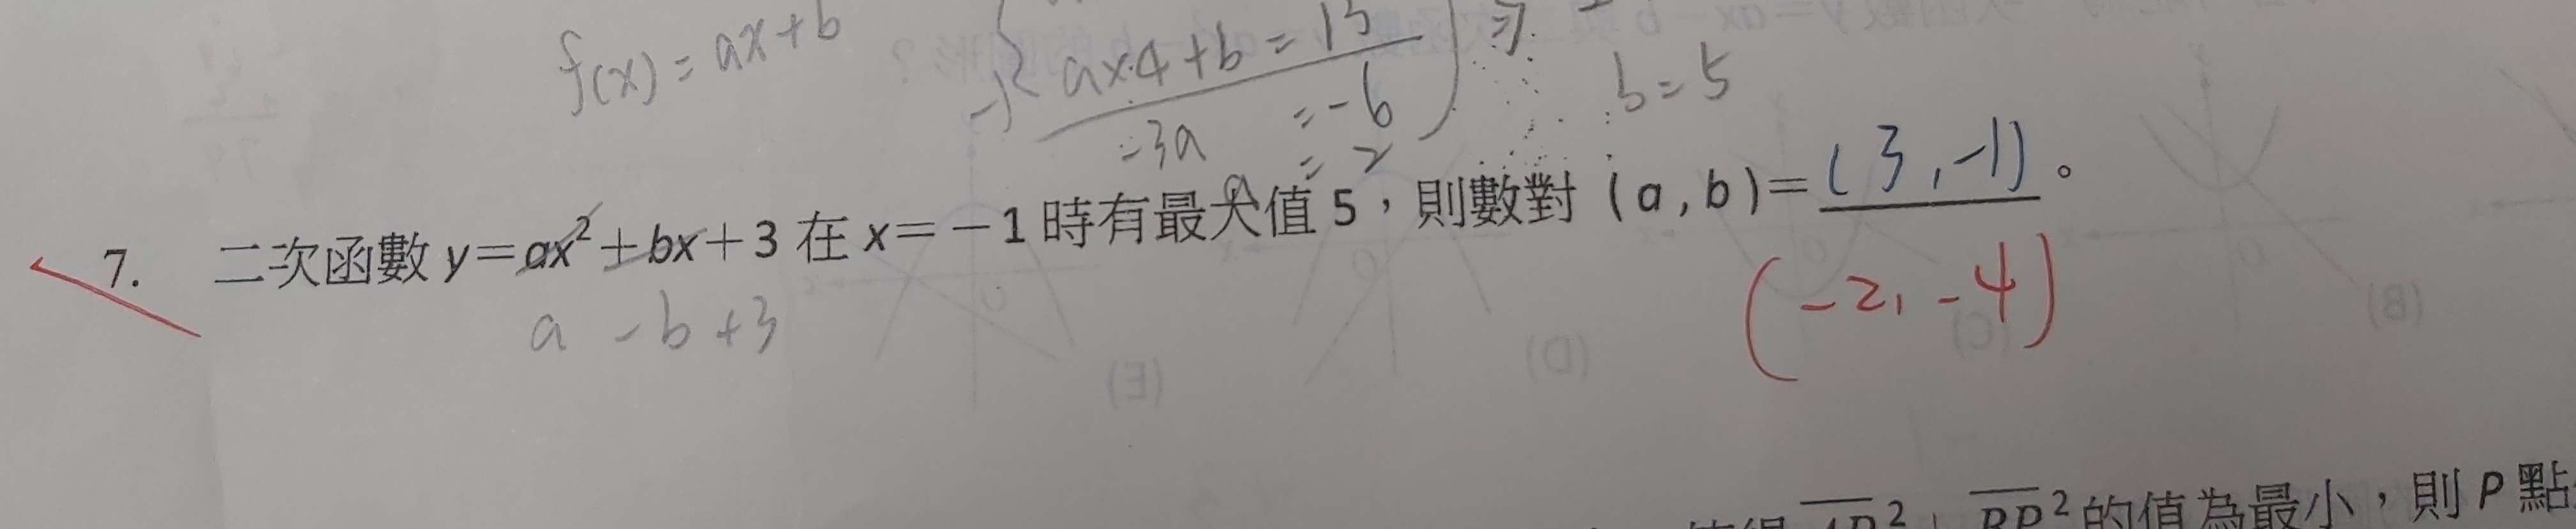 f(x)=ax+b
a×4+b=13
-3a =-6
a=2
b=5
7. 二次函數 y=ax²+bx+3 在 x=-1 時有最大值 5,則數對 (a,b)=(3,-1)。
a-b+3
(-2,-4)
² BP² 的值為最小,則 P 點